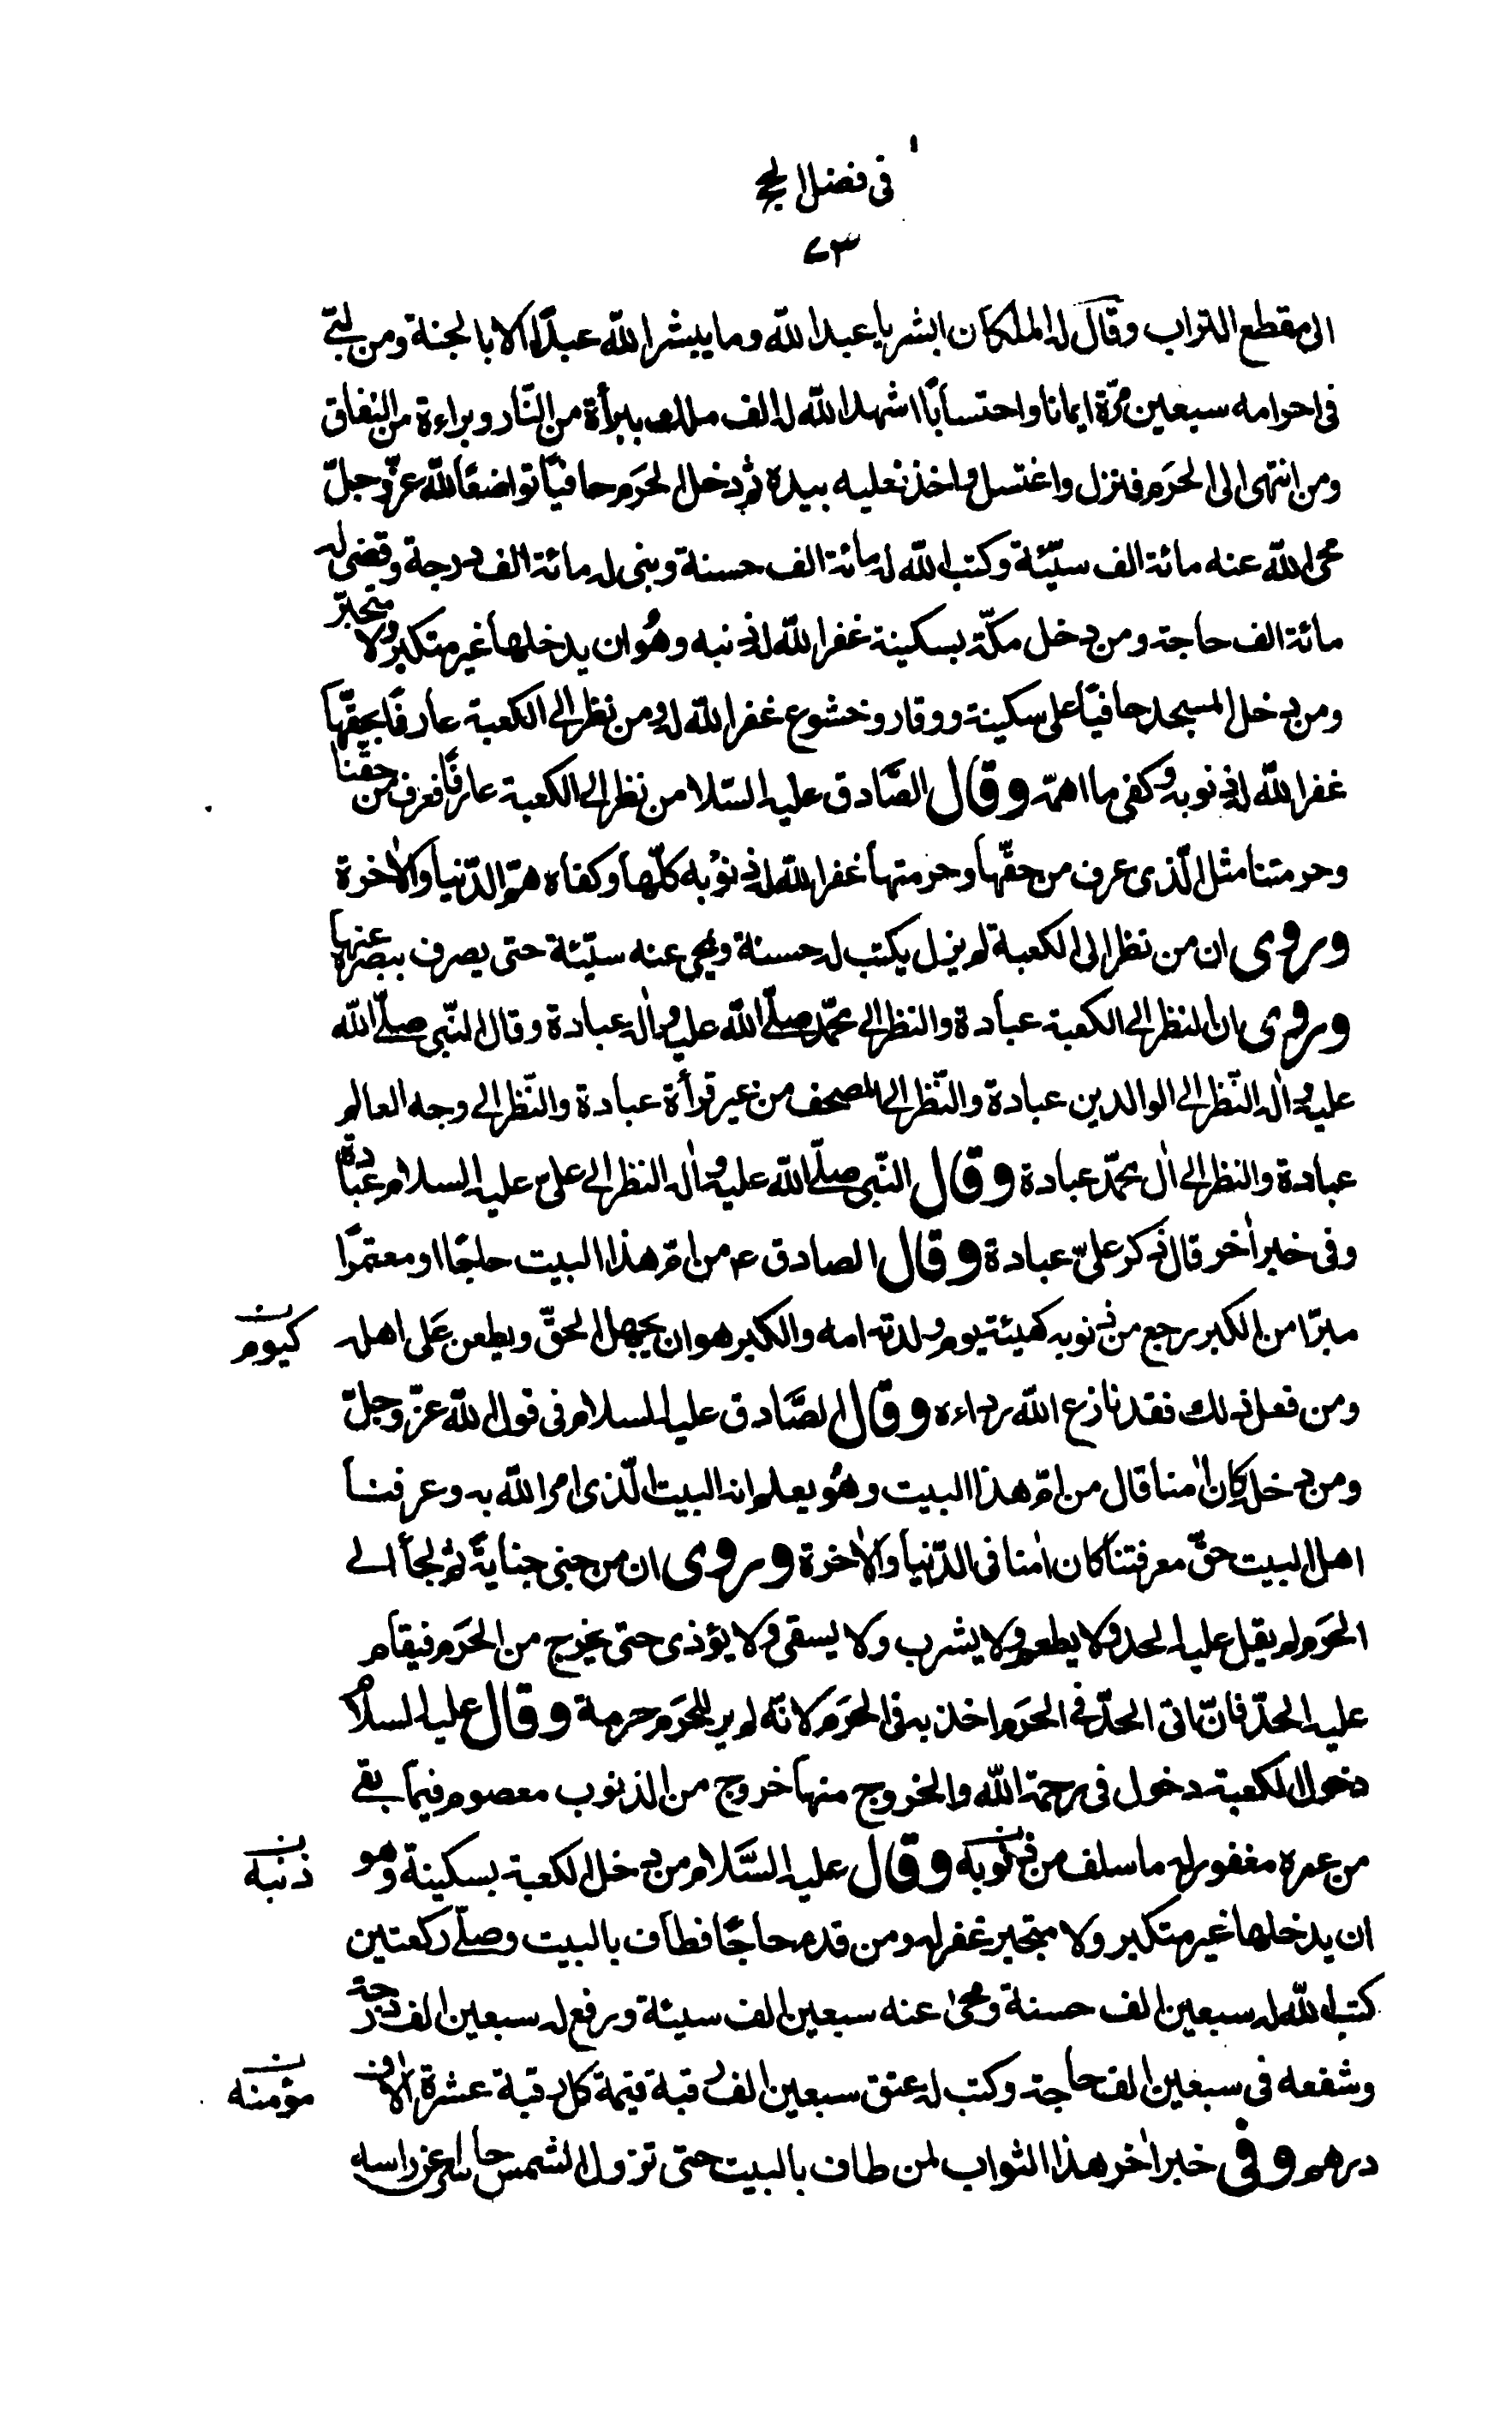 فى فضل الحج
٧٣
الى مقطع التراب وقال له الملكان ابشر يا عبد الله وما يبشر الله عبدًا الا بالجنة ومن لبّى
فى احرامه سبعين مرّة ايمانا واحتسابًا اشهد الله له الف ملك ببرأة من النّار وبراءة من النفاق
ومن انتهى الى الحَرَم فنزل واغتسل واخذ نعليه بيده ثم دخل الحَرَم حافيًا تواضعًا لله عزّ وجلّ
محى الله عنه مائة الف سيّئة وكتب الله له مائة الف حسنة وبنى له مائة الف درجة وقضى له
مائة الف حاجة ومن دخل مكّة بسكينة غفر الله له ذنبه وهُو ان يدخلها غير متكبر ولا متجبّر
ومن دخل المسجد حافيًا على سكينة ووقار وخشوع غفر الله له ومن نظر الى الكعبة عارفًا بحقّها
غفر الله له ذنوبه وكفى ما اهمّه وقال الصَّادق عليه السّلا من نظر الى الكعبة عارفًا فعرف من حقّنا
وحرمتنا مثل الّذى عرف من حقّها وحرمتها غفر الله له ذنوُبه كلّها وكفاه همّ الدّنيا والاٰخرة
وروى ان من نظر الى الكعبة لم يزل يكتب له حسنة ويمحى عنه سيّئة حتى يصرف ببصره عنها
وروى ان النظر الى الكعبة عبادة والنظر الى محمّد صلّى الله عليه واٰله عبادة وقال النّبى صلّى الله
عليه واٰله النّظر الى الوالدين عبادة والنّظر الى المصحف من غير قرأة عبادة والنّظر الى وجه العالم
عبادة والنظر الى اٰل محمّد عبادة وقال النّبى صلّى الله عليه واٰله النظر الى علىّ عليه السلام عبادة
وفى خبر اٰخر قال ذكر علىّ عبادة وقال الصادق ع من امّ هذا البيت حاجًا او معتمرًا
مبرّا من الكبر رجع من ذنوبه كهيئة يوم ولدته امه والكبر هو ان يجهل الحقّ ويطعن عَلى اهله
كيوم ن
ومن فعل ذلك فقد نازع الله رداءه وقال الصَّادق عليه السلام فى قول الله عزّ وجلّ
ومن دخله كان اٰمنا قال من امّ هذا البيت وهُو يعلم انه البيت الّذى امر الله به وعرفنا
اهل البيت حقّ معرفتنا كان اٰمنا فى الدّنيا والاٰخرة وروى ان من جنى جنايةً ثم لجأ الى
الحَرَم لم يقل عليه الحد ولا يطعم ولا يشرب ولا يسقى ولا يؤذى حتى يخرج من الحَرَم فيقام
عليه الحدّ فانّ اتى الحدّ فى الحَرَم اخذ به فى الحَرَم لانّه لم ير للحَرَم حرمة وقال عليه السلام
دخول الكعبة دخول فى رحمة الله والخروج منها خروج من الذنوب معصوم فيما بقى
من عمره مغفور له ما سلف من ذنوبه وقال عليه السَّلام من دخل الكعبة بسكينة وهو
ذنبه ن
ان يدخلها غير متكبر ولا متجبر غفر له ومن قدم حاجًا فطاف بالبيت وصلّى ركعتين
كتب الله له سبعين الف حسنة ومحىٰ عنه سبعين الف سيئة ورفع له سبعين الف درجة
وشفعه فى سبعين الف حاجة وكتب له عتق سبعين الف رقبة قيمة كل رقبة عشرة الاف
مؤمنه ن
درهم وفى خبر اٰخر هذا الثواب لمن طاف بالبيت حتى تزول الشمس حاسرا عن راسه